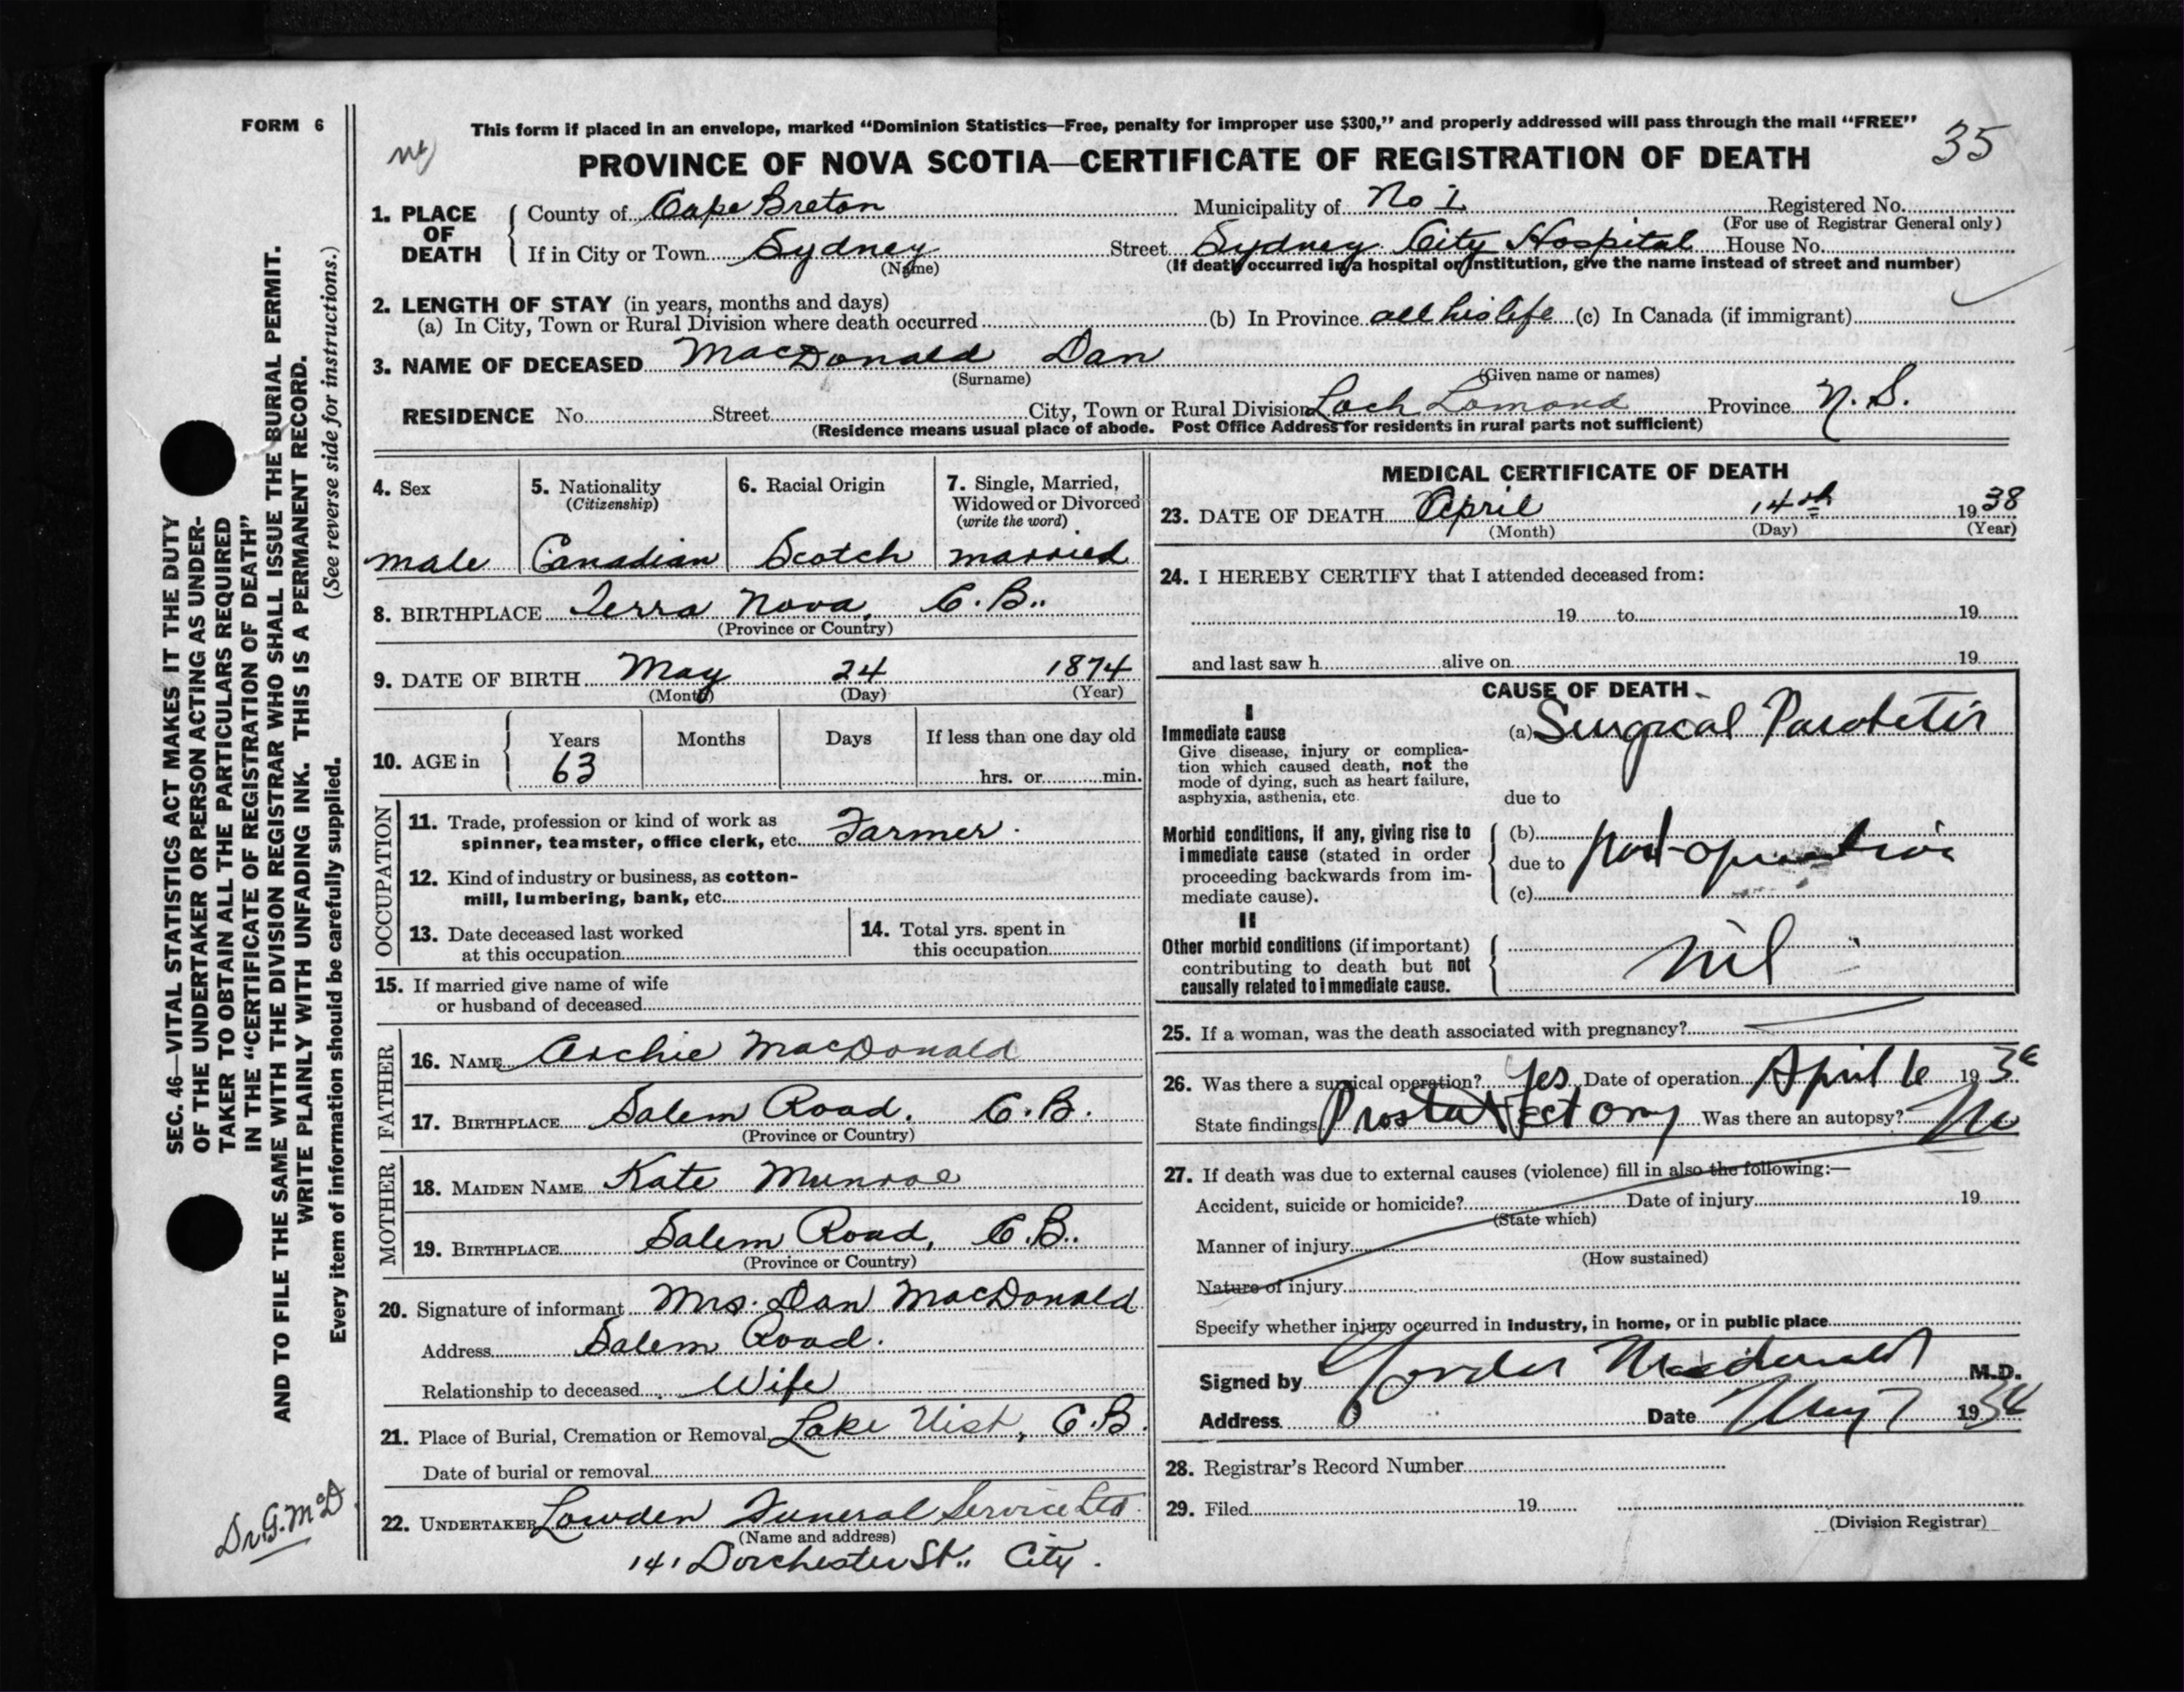 FORM 6
This form if placed in an envelope, marked "Dominion Statistics—Free, penalty for improper use $300," and properly addressed will pass through the mail "FREE"
35
PROVINCE OF NOVA SCOTIA—CERTIFICATE OF REGISTRATION OF DEATH
1. PLACE OF DEATH
County of Cape Breton Municipality of No 1 Registered No.
(For use of Registrar General only)
If in City or Town Sydney Street Sydney City Hospital House No.
(Name) (If death occurred in a hospital or institution, give the name instead of street and number)
2. LENGTH OF STAY (in years, months and days)
(a) In City, Town or Rural Division where death occurred (b) In Province all his life (c) In Canada (if immigrant)
3. NAME OF DECEASED MacDonald Dan
(Surname) (Given name or names)
RESIDENCE No. Street City, Town or Rural Division Loch Lomond Province N. S.
(Residence means usual place of abode. Post Office Address for residents in rural parts not sufficient)
4. Sex
male
5. Nationality
(Citizenship)
Canadian
6. Racial Origin
Scotch
7. Single, Married,
Widowed or Divorced
(write the word)
married
8. BIRTHPLACE Terra Nova, C. B..
(Province or Country)
9. DATE OF BIRTH May 24 1874
(Month) (Day) (Year)
10. AGE in
Years Months Days If less than one day old
63 hrs. or min.
OCCUPATION
11. Trade, profession or kind of work as
spinner, teamster, office clerk, etc. Farmer.
12. Kind of industry or business, as cotton-
mill, lumbering, bank, etc.
13. Date deceased last worked
at this occupation
14. Total yrs. spent in
this occupation
15. If married give name of wife
or husband of deceased
FATHER
16. NAME Archie MacDonald
17. BIRTHPLACE Salem Road. C. B.
(Province or Country)
MOTHER
18. MAIDEN NAME Kate Munroe
19. BIRTHPLACE Salem Road, C.B..
(Province or Country)
20. Signature of informant Mrs. Dan MacDonald
Address Salem Road.
Relationship to deceased Wife
21. Place of Burial, Cremation or Removal Lake Uist, C.B.
Date of burial or removal
22. UNDERTAKER Lowden Funeral Service Ltd.
(Name and address)
141 Dorchester St.. City.
MEDICAL CERTIFICATE OF DEATH
23. DATE OF DEATH April 14th 1938
(Month) (Day) (Year)
24. I HEREBY CERTIFY that I attended deceased from:
19 to 19
and last saw h alive on 19
CAUSE OF DEATH
I
Immediate cause
Give disease, injury or complica-
tion which caused death, not the
mode of dying, such as heart failure,
asphyxia, asthenia, etc.
(a) Surgical Parotitis
due to
Morbid conditions, if any, giving rise to
immediate cause (stated in order
proceeding backwards from im-
mediate cause).
(b)
due to post-operative
(c)
II
Other morbid conditions (if important)
contributing to death but not
causally related to immediate cause.
nil
25. If a woman, was the death associated with pregnancy?
26. Was there a surgical operation? Yes Date of operation April 6 193
State findings Prostatectomy Was there an autopsy? No
27. If death was due to external causes (violence) fill in also the following:—
Accident, suicide or homicide? Date of injury 19
(State which)
Manner of injury
(How sustained)
Nature of injury
Specify whether injury occurred in Industry, in home, or in public place
Signed by Gordon Macdonald M.D.
Address Date May 7 19
28. Registrar's Record Number
29. Filed 19
(Division Registrar)
SEC. 46—VITAL STATISTICS ACT MAKES IT THE DUTY
OF THE UNDERTAKER OR PERSON ACTING AS UNDER-
TAKER TO OBTAIN ALL THE PARTICULARS REQUIRED
IN THE "CERTIFICATE OF REGISTRATION OF DEATH"
AND TO FILE THE SAME WITH THE DIVISION REGISTRAR WHO SHALL ISSUE THE BURIAL PERMIT.
WRITE PLAINLY WITH UNFADING INK. THIS IS A PERMANENT RECORD.
(See reverse side for instructions.)
Every item of information should be carefully supplied.
Dr G. McD